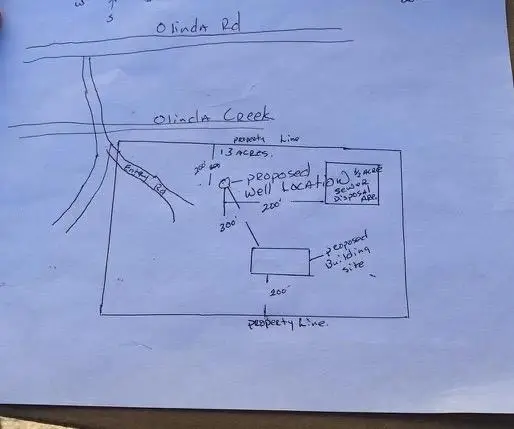 S
Olinda Rd
Olinda Creek
Property Line
13 ACRES.
Entry Rd
proposed
Well Location
½ ACRE
Sewer
Disposal
200'
300'
proposed
Building
site
200'
property Line.